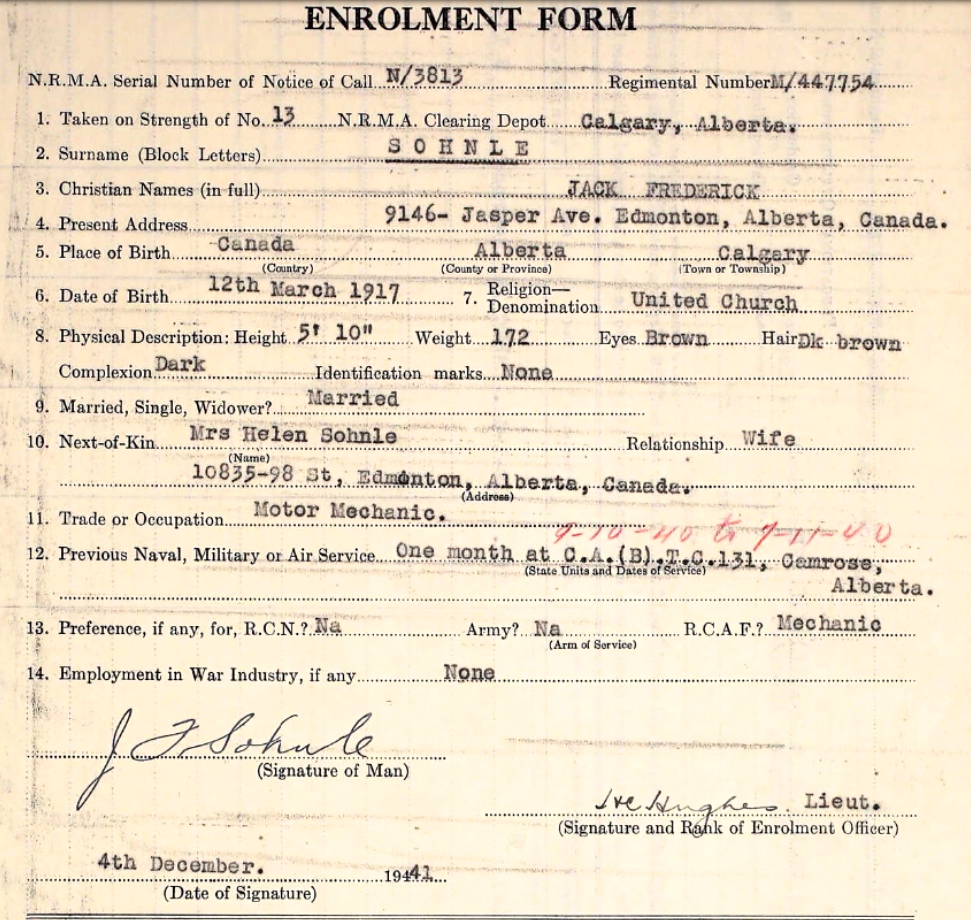 ENROLMENT FORM
N.R.M.A. Serial Number of Notice of Call N/3813 Regimental Number M/447754
1. Taken on Strength of No. 13 N.R.M.A. Clearing Depot Calgary, Alberta.
2. Surname (Block Letters) SOHNLE
3. Christian Names (in full) JACK FREDERICK
4. Present Address 9146- Jasper Ave. Edmonton, Alberta, Canada.
5. Place of Birth Canada Alberta Calgary
(Country) (County or Province) (Town or Township)
6. Date of Birth 12th March 1917 7. Religion—
Denomination United Church
8. Physical Description: Height 5' 10" Weight 172 Eyes Brown Hair Dk brown
Complexion Dark Identification marks None
9. Married, Single, Widower? Married
10. Next-of-Kin Mrs Helen Sohnle Relationship Wife
(Name)
10835-98 St, Edmonton, Alberta, Canada.
(Address)
11. Trade or Occupation Motor Mechanic.
9-10-40 to 7-11-40
12. Previous Naval, Military or Air Service One month at C.A.(B).T.C.131, Camrose,
(State Units and Dates of Service)
Alberta.
13. Preference, if any, for, R.C.N.? Na Army? Na R.C.A.F.? Mechanic
(Arm of Service)
14. Employment in War Industry, if any None
J F Sohnle
(Signature of Man)
Hughes. Lieut.
(Signature and Rank of Enrolment Officer)
4th December. 1941
(Date of Signature)